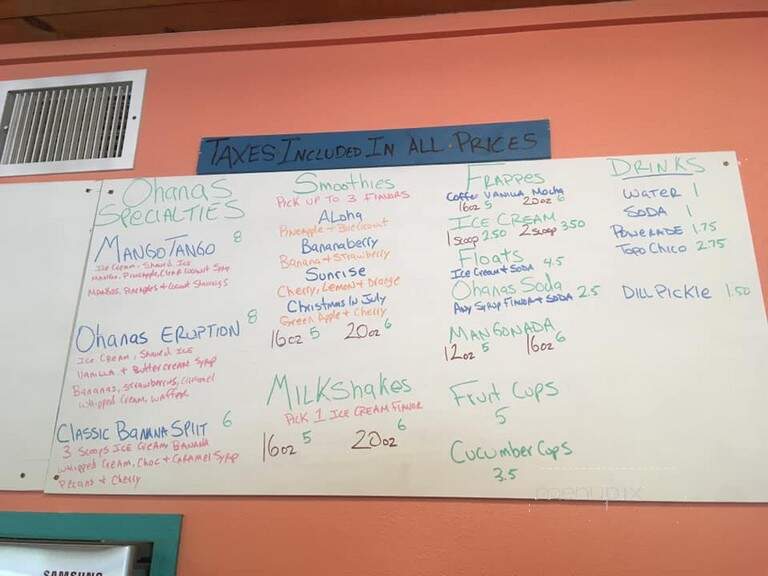 TAXES INCLUDED IN ALL PRICES
Ohanas
SPECIALTIES
MANGO TANGO 8
Ice Cream, Shaved Ice
Mango, Pineapple, Coconut Syrup
Mangos, Pineapples & Coconut Shavings
Ohanas ERUPTION 8
Ice Cream, Shaved Ice
Vanilla + Buttercream Syrup
Bananas, strawberries, caramel
whipped cream, waffers
CLASSIC BANANA SPLIT 6
3 Scoops ICE CREAM BANANA
Whipped Cream, Choc + CARAMEL Syrup
Pecans + Cherry
Smoothies
PICK UP TO 3 FLAVORS
ALoha
Pineapple + Blue Coconut
Bananaberry
Banana + Strawberry
Sunrise
Cherry, Lemon + Orange
Christmas In July
Green Apple + Cherry
16oz 5 20oz 6
MILKShakes
PICK 1 ICE CREAM FLAVOR
16oz 5 20oz 6
FRAPPES
Coffee VANILLA Mocha
16oz 5 20oz 6
ICE CREAM
1 scoop 2.50 2 scoop 3.50
Floats
ICE CREAM & SODA 4.5
Ohanas Soda
Any Syrup Flavor & SODA 2.5
MANGONADA
12oz 5 16oz 6
Fruit Cups
5
Cucumber Cups
3.5
DRINKS
WATER 1
SODA 1
POWERADE 1.75
TOPO CHICO 2.75
DILL PICKLE 1.50
menupix
SAMSUNG